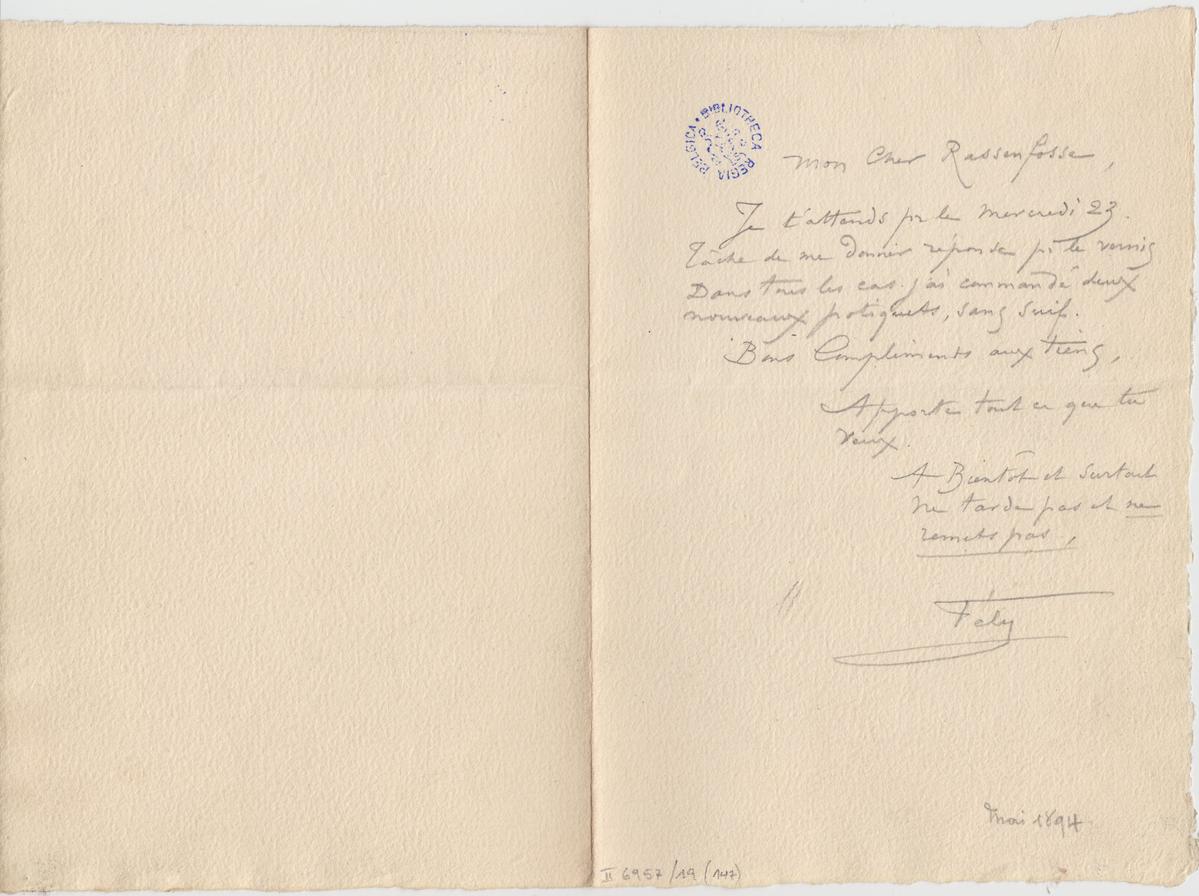 BIBLIOTHECA REGIA BELGICA
Mon Cher Rassenfosse,
Je t'attends pr le Mercredi 23.
Tâche de me donner réponse pr le vernis
Dans tous les cas j'ai commandé deux
nouveaux potiquets, sans suif.
Bons Compliments aux tiens,
Apporte tout ce que tu
veux.
A Bientôt et surtout
ne tarde pas et ne
remets pas,
Fély
Mai 1894
II 6957/19 (147)